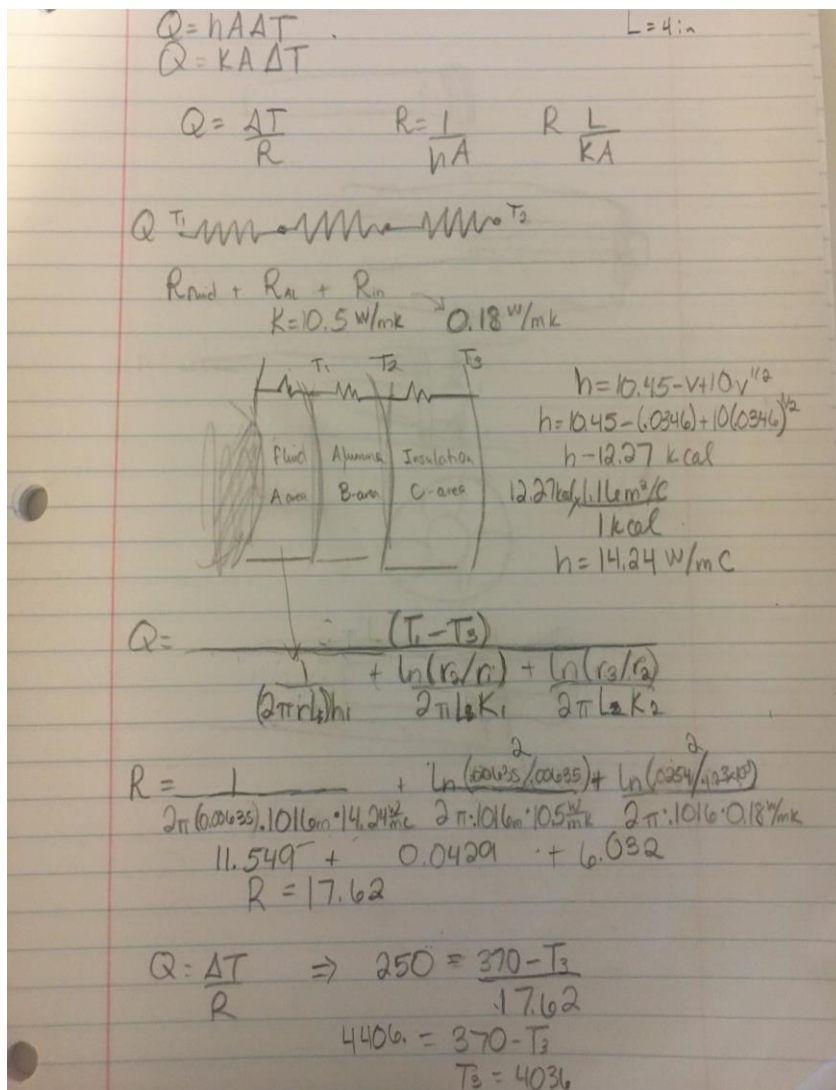 Q = hAΔT .
L = 4in
Q = KAΔT
Q = ΔT/R R = 1/hA R L/KA
Q T₁ T₂
R fluid + R AL + R in
K=10.5 W/mk 0.18 W/mk
T₁ T₂ T₃
Fluid Alumina Insulation
A area B-area C-area
h=10.45-v+10v^1/2
h=10.45-(.0346)+10(.0346)^1/2
h-12.27 kcal
12.27kcal 1.16m²/C
1 kcal
h=14.24 W/mC
Q= (T₁-T₃)
1/(2πrL)h₁ + ln(r₂/r₁)/2πLK₁ + ln(r₃/r₂)/2πLK₂
2 2
R = 1 + ln(.00635) + ln(.0254
2π(0.00635).1016m·14.24 W/mc 2π·.1016m·10.5 W/mk 2π·.1016·0.18 W/mk
11.549 + 0.0429 + 6.032
R = 17.62
Q = ΔT/R ⇒ 250 = 370-T₃/17.62
4406. = 370-T₃
T₃ = 4036